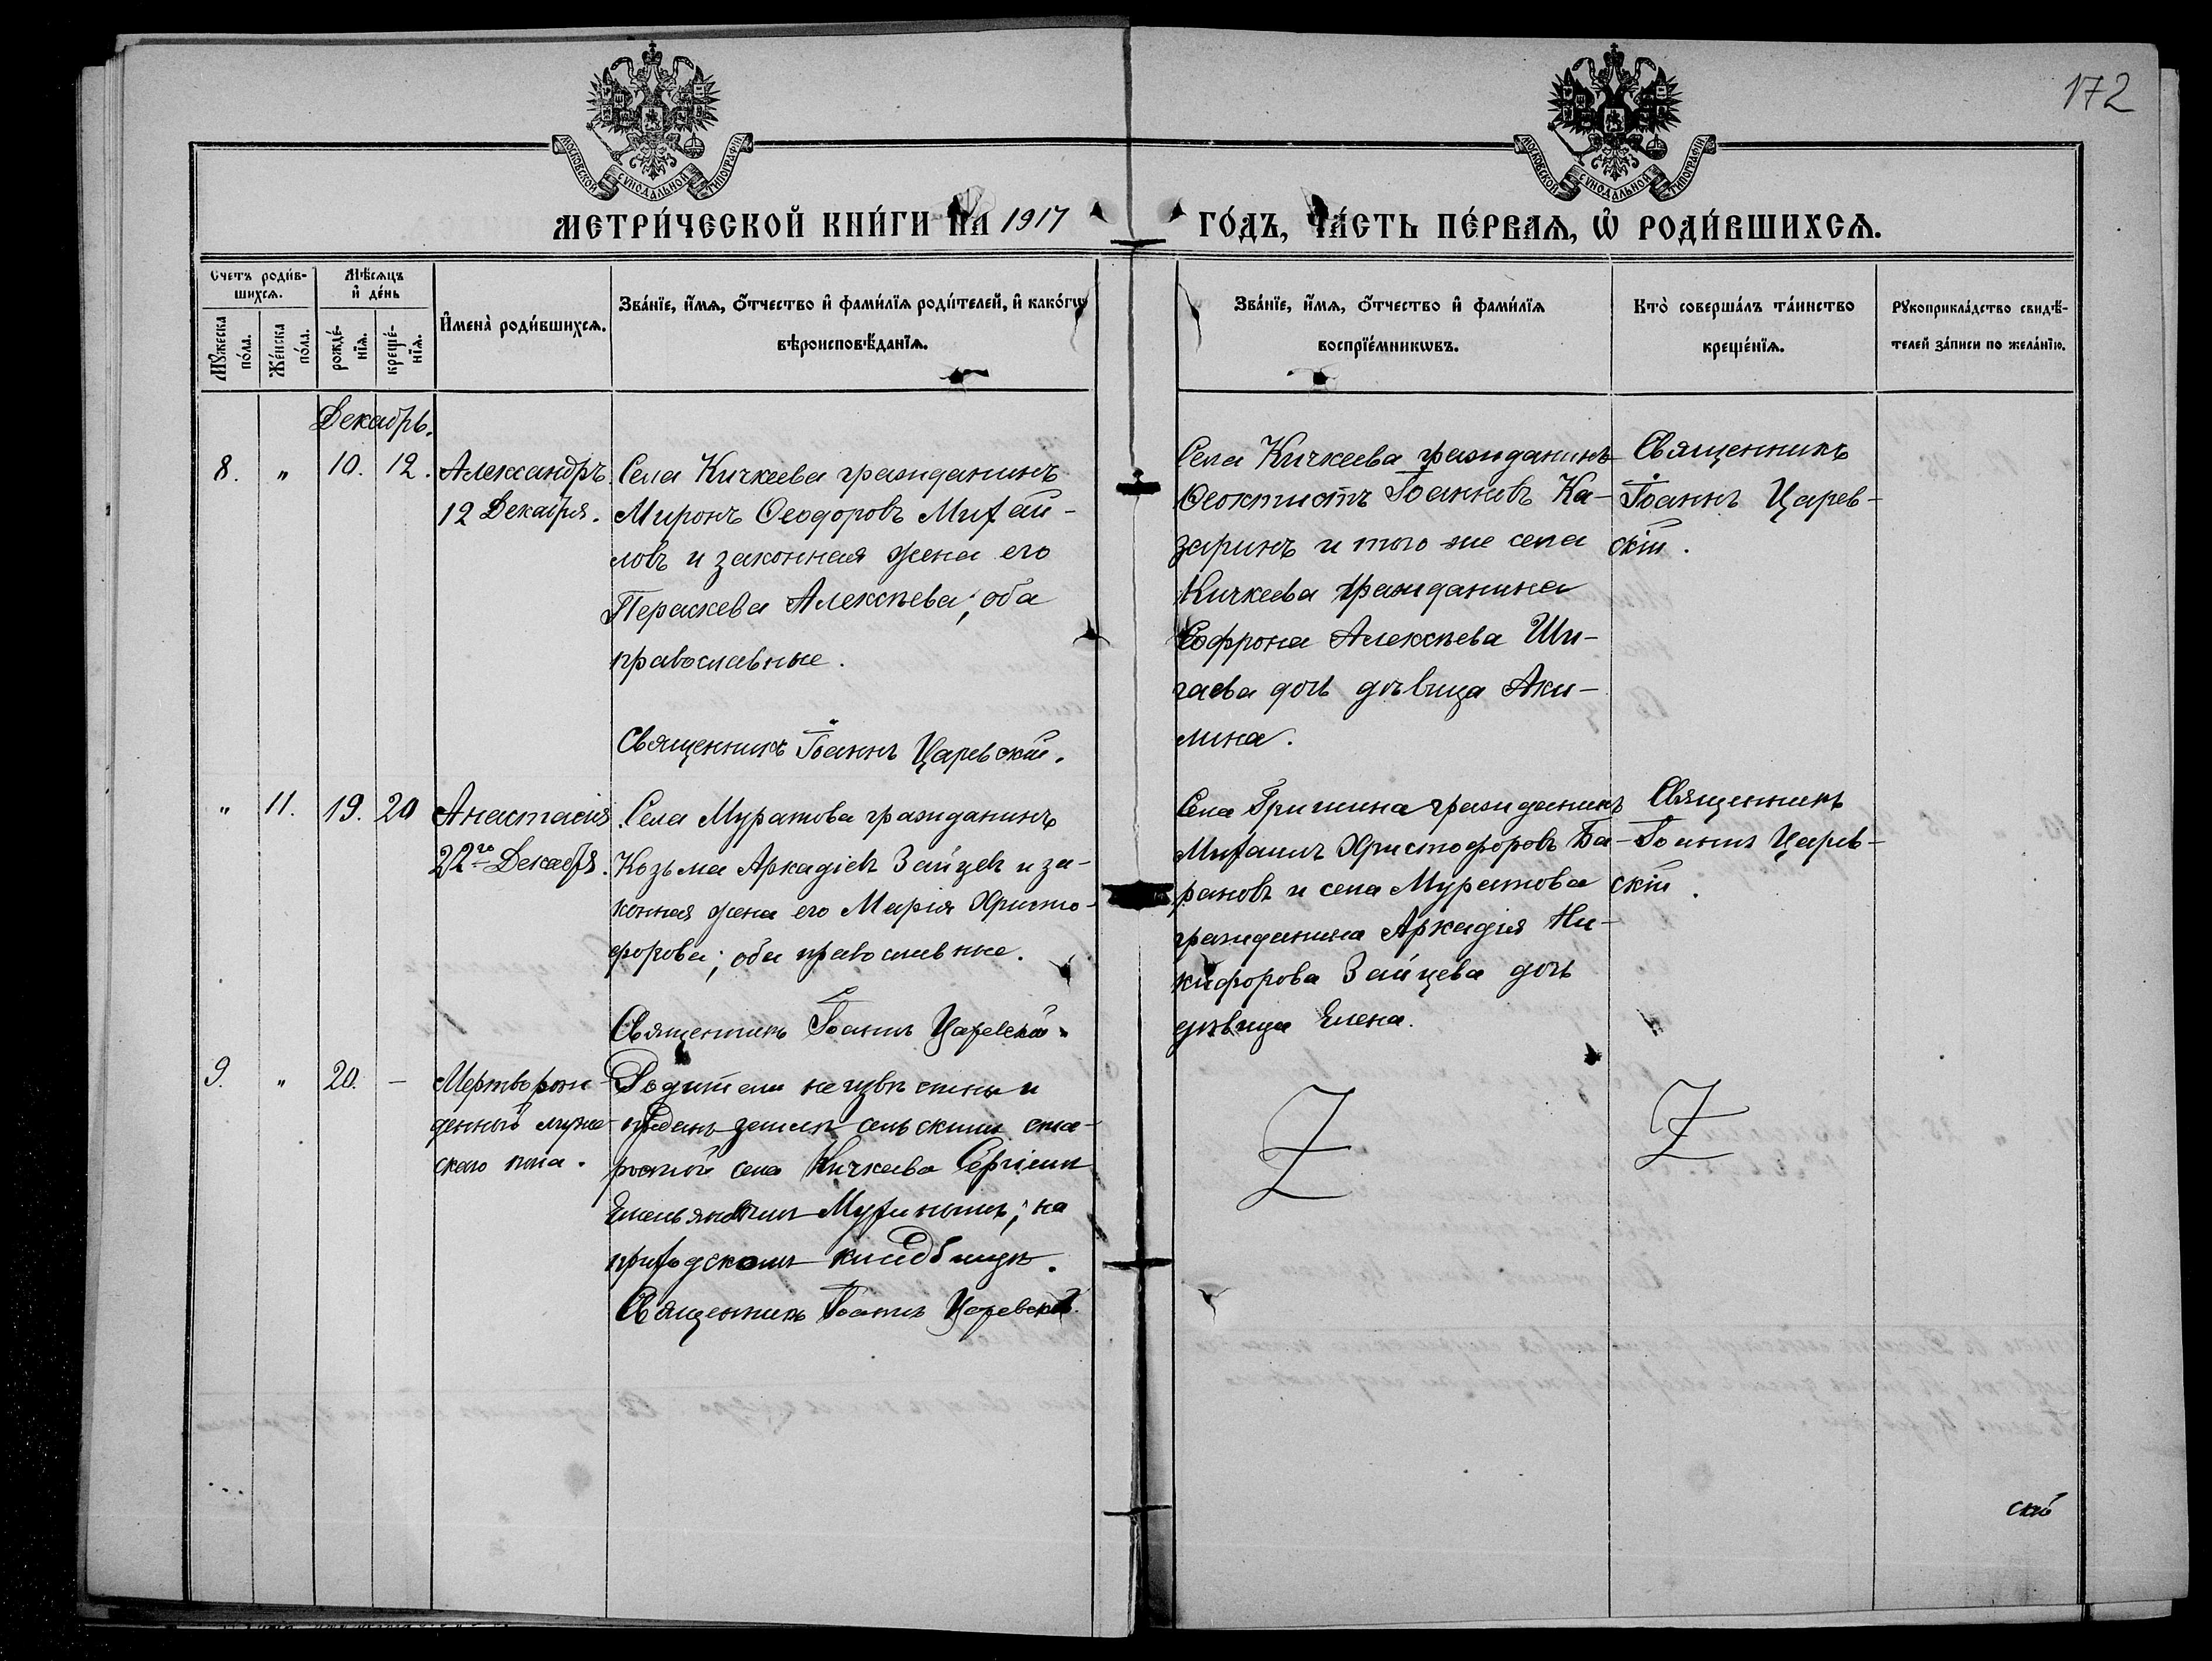 172
МОСКОВСКОЙ СУНОДАЛЬНОЙ ТИПОГРАФІИ
МОСКОВСКОЙ СУНОДАЛЬНОЙ ТИПОГРАФІИ
МЕТРИ́ЧЕСКОЙ КНИ́ГИ НА 1917
ГО́ДЪ, ЧА́СТЬ ПЕ́РВАѦ, Ѽ РОДИ́ВШИХСѦ.
Счетъ роди́в-
шихсѧ.
Мѣ́сѧцъ
и҆ де́нь
Мꙋ́жеска
по́ла.
Же́нска
по́ла.
рожде́-
нїѧ.
креще́-
нїѧ.
И҆мена̀ роди́вшихсѧ.
Зва́нїе, и҆́мѧ, ѻ҆́тчество и҆ фами́лїѧ роди́телей, и҆ како́гѡ
вѣроисповѣ́данїѧ.
Зва́нїе, и҆́мѧ, ѻ҆́тчество и҆ фами́лїѧ
воспрїе́мникѡвъ.
Кто̀ соверша́лъ та́инство
креще́нїѧ.
Рꙋкоприкла́дство свидѣ́-
телей за́писи по жела́нїю.
Декабрь.
8. " 10. 12. Александръ
12 Декабря.
Села Кичкеева гражданинъ
Миронъ Ѳеодоровъ Михай-
ловъ и законная жена его
Параскева Алексѣева; оба
православные.
Священникъ Іоаннъ Царевскій.
Села Кичкеева гражданинъ
Ѳеоктистъ Іоанновъ Ка-
заринъ и того же села
Кичкеева гражданина
Софрона Алексѣева Ши-
гаева дочь дѣвица Аки-
лина.
Священникъ
Іоаннъ Царев-
скій.
" 11. 19. 20 Анастасія
22го Декабря.
Села Муратова гражданинъ
Козьма Аркадіевъ Зайцевъ и за-
конная жена его Марія Христо-
форова; оба православные.
Священникъ Іоаннъ Царевскій.
Села Гришина гражданинъ
Михаилъ Христофоровъ Ба-
рановъ и села Муратова
гражданина Аркадія Ни-
кифорова Зайцева дочь
дѣвица Елена.
Священникъ
Іоаннъ Царев-
скій.
9. " 20. — Мертворож-
денный муже-
скаго пола.
Родители неизвѣстны и
преданъ землѣ сельскимъ ста-
ростой села Кичкеева Сергіемъ
Емельяновымъ; на
приходскомъ кладбищѣ.
Священникъ Іоаннъ Царевскій.
Z
Z
скій